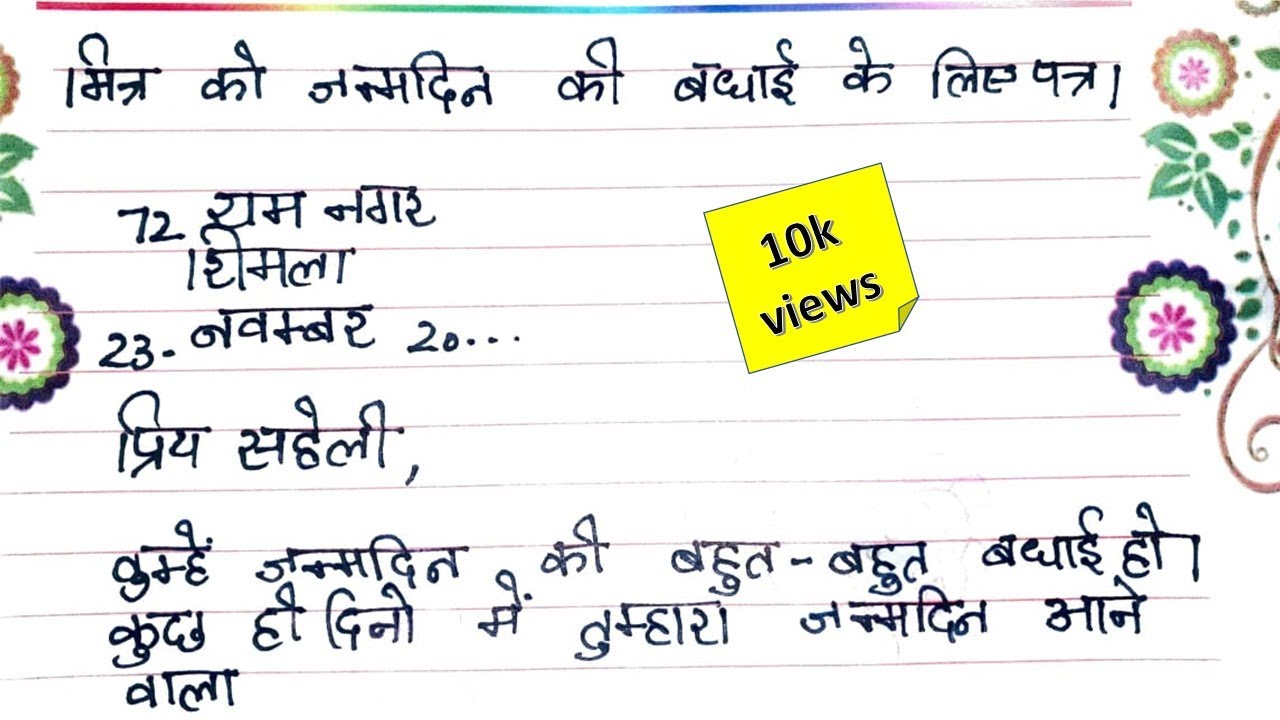 मित्र को जन्मदिन की बधाई के लिए पत्र।
72. राम नगर
शिमला
23. नवम्बर 20...
10k
views
प्रिय सहेली,
तुम्हें जन्मदिन की बहुत-बहुत बधाई हो।
कुछ ही दिनो में तुम्हारा जन्मदिन आने
वाला